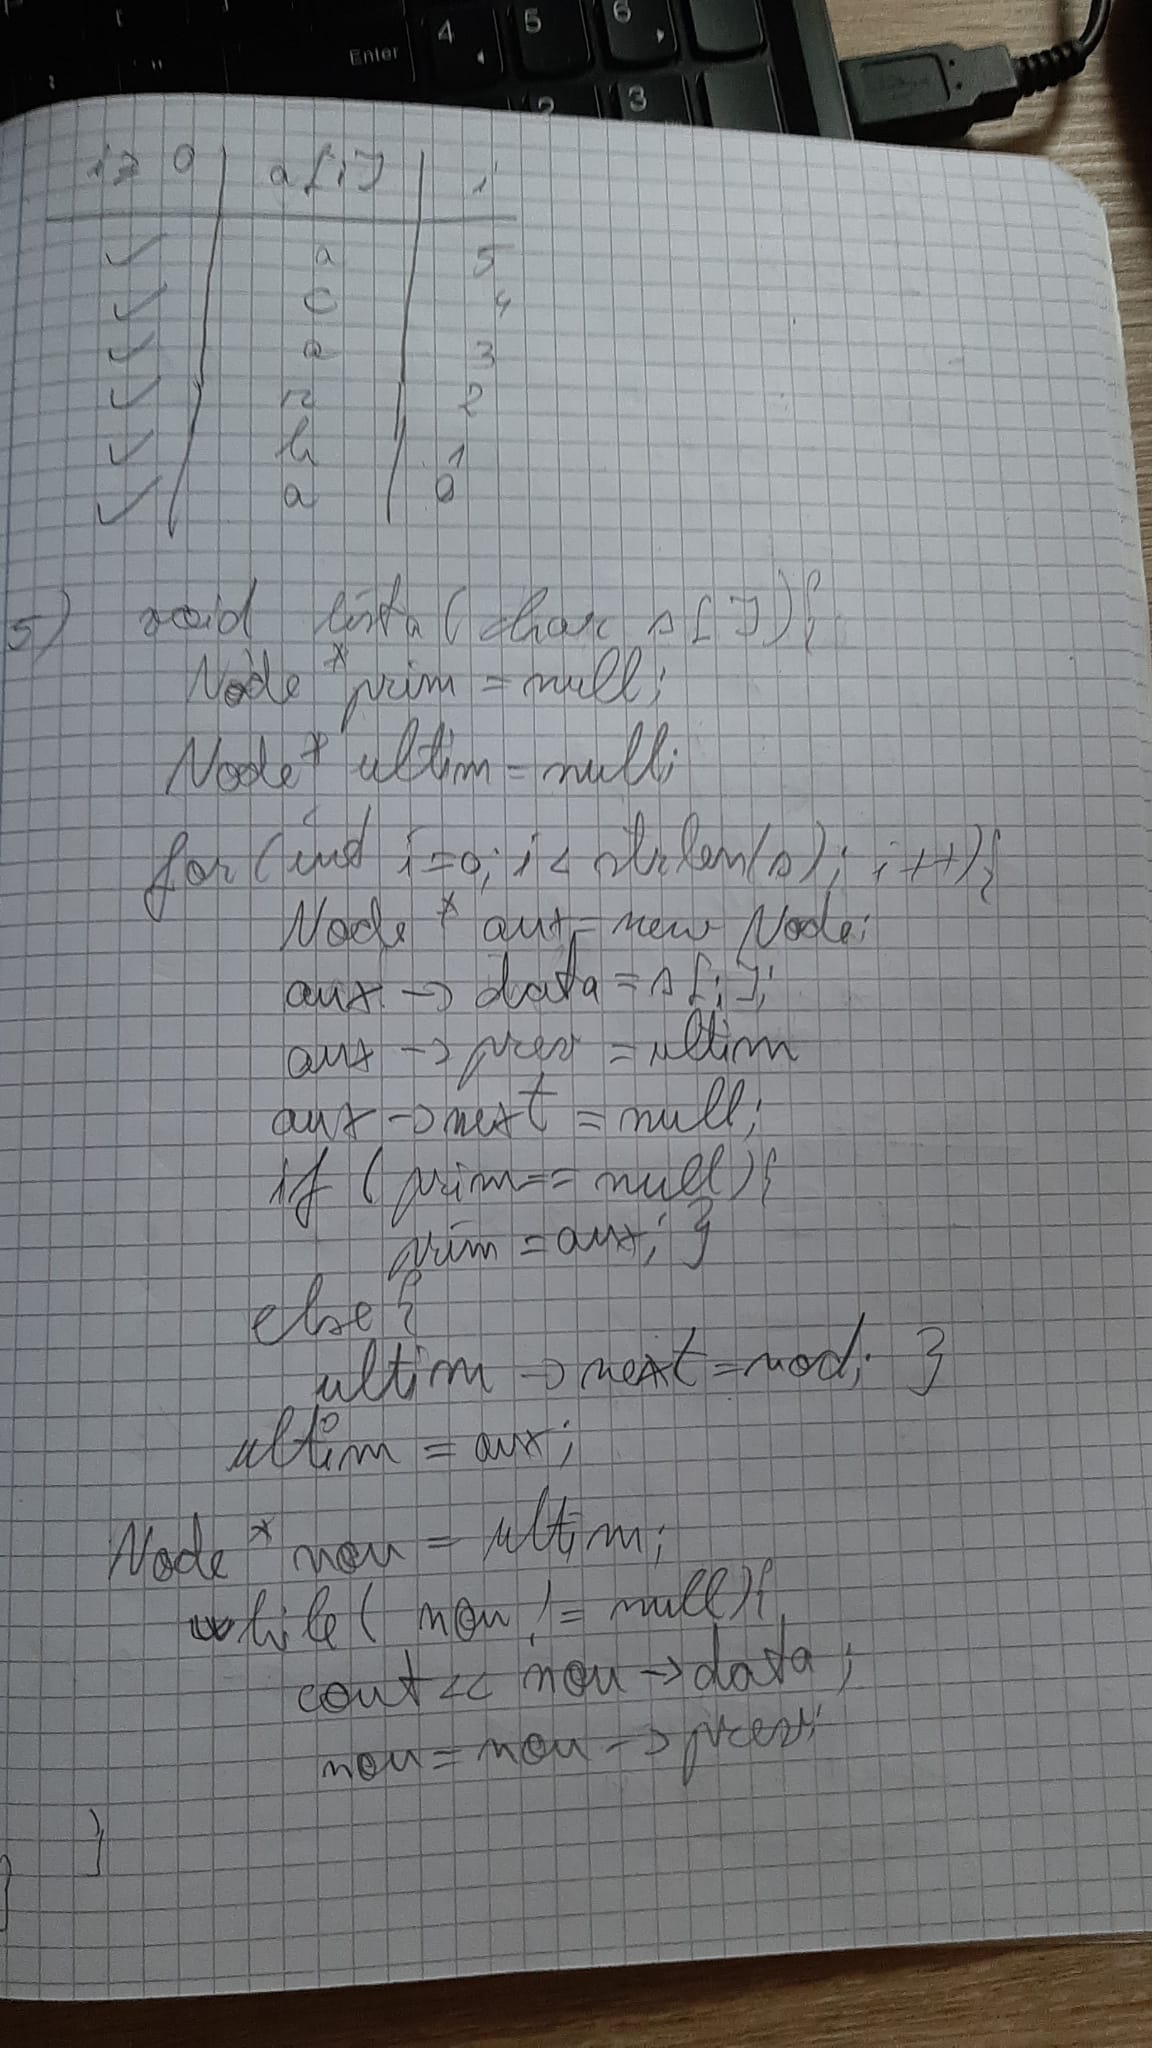 Enter
4
5
6
2
3
i≥0 a[i] i
✓ a 5
✓ c 4
✓ a 3
✓ r 2
✓ b 1
✓ a 0
5) void lista(char s[]){
Node *prim = null;
Node* ultim = null;
for(int i=0; i< strlen(s); i++){
Node * aux = new Node;
aux -> data = s[i];
aux -> prev = ultim
aux -> next = null;
if (prim == null){
prim = aux; }
else {
ultim -> next = nod; }
ultim = aux;
Node * nou = ultim;
while( nou != null){
cout << nou -> data;
nou = nou -> prev;
}
}